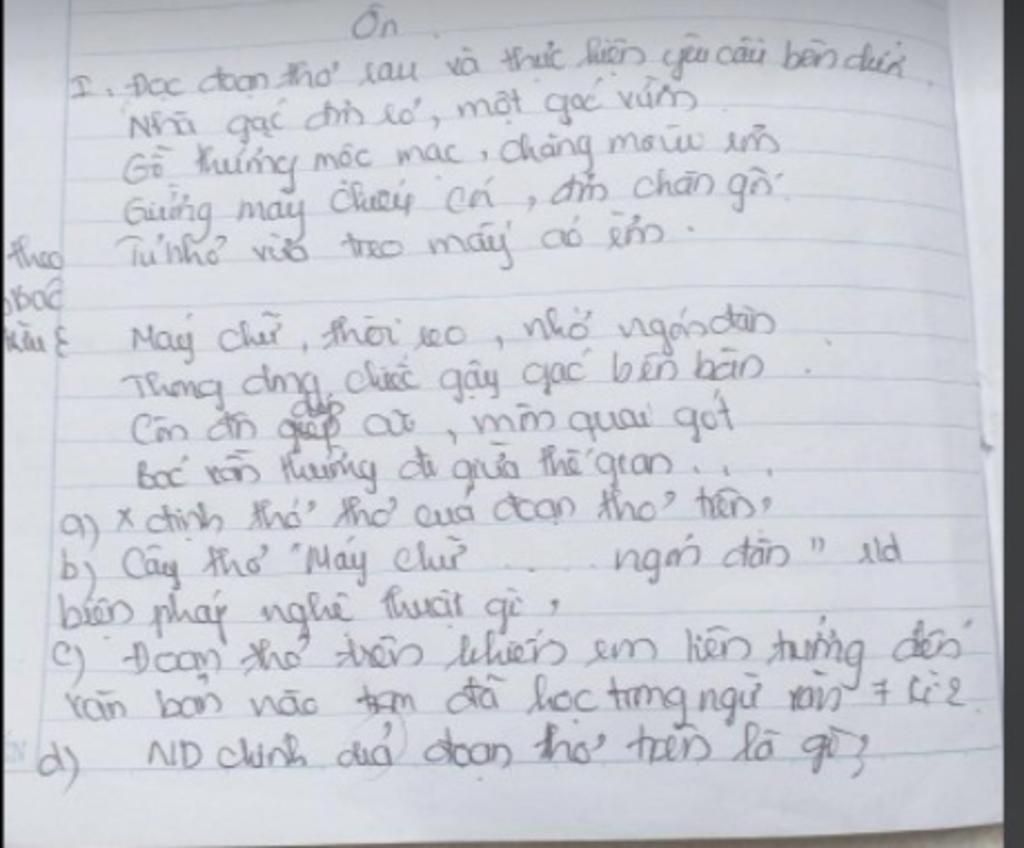 Ôn
I. Đọc đoạn thơ sau và thực hiện yêu cầu bên dưới
Nhà gác đơn sơ, một góc vườn
Gỗ thường mộc mạc, chẳng mùi sơn
Giường mây chiếu cói, đơn chăn gối
Tủ nhỏ vừa treo mấy áo sờn.
theo
Bác
Máy chữ, thôi reo, nhớ ngón đàn
Thong dong chiếc gậy gác bên bàn
Còn đôi dép cũ, mòn quai gót
Bác vẫn thường đi giữa thế gian...
a) X định thể thơ của đoạn thơ trên,
b) Câu thơ "Máy chữ ... ngón đàn" sd
biện pháp nghệ thuật gì,
c) Đoạn thơ trên khiến em liên tưởng đến
văn bản nào đã học trong ngữ văn 7 kì 2
d) ND chính của đoạn thơ trên là gì,